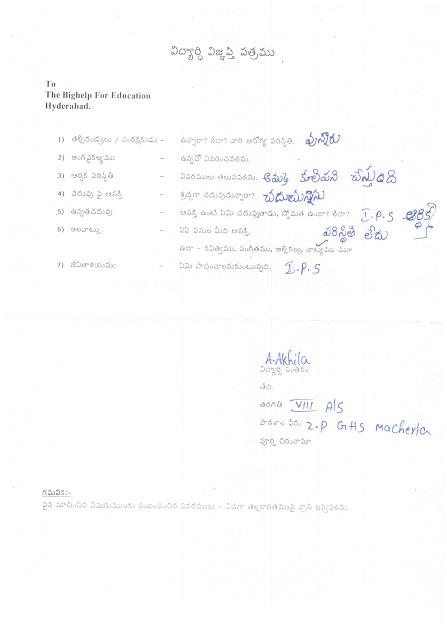 విద్యార్ధి విజ్ఞప్తి పత్రము
To
The Bighelp For Education
Hyderabad.
1) తల్లిదండ్రులు / సంరక్షకుడు – ఉన్నారా? లేదా? వారి ఆరోగ్య పరిస్థితి. వున్నారు
2) అంగవైకల్యము – ఉన్నచో వివరించవలెను.
3) ఆర్ధిక పరిస్థితి – వివరములు తెలుపవలెను. అమ్మ కూలిపని చేస్తుంది
4) చదువు పై ఆసక్తి – శ్రద్ధగా చదువుచున్నారా? చదువుచున్నాను
5) ఉన్నతచదువు – ఆసక్తి ఉంటే ఏమి చదువుతాడు, స్తోమత ఉందా? లేదా? I.P.S ఆర్థిక
6) అలవాట్లు – ఏఏ పనుల మీద ఆసక్తి. పరిస్థితి లేదు
ఉదా – కవిత్వము, సంగీతము, అల్లికలు, నాట్యము
7) జీవితాశయము – ఏమి సాధించాలనుకుంటున్నది. I.P.S
A.Akhila
విద్యార్ధి సంతకం
తేది.
తరగతి VIII A/S
పాఠశాల పేరు Z.P GHS Macherla
పూర్తి చిరునామా
గమనిక:-
పైన సూచించిన విషయములకు సంబంధించిన వివరములు – విడిగా తెల్లకాగితముపై వ్రాసి ఇవ్వవలెను.